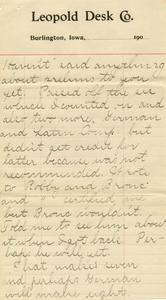 Leopold Desk Co.
Burlington, Iowa, 190
Haven't said anything
about exams to you
yet. Passed off the six
which I counted on and
also two more, German
and Latin Comp. but
didn't get credit for
latter because was not
recommended. I wrote
to Bobby and Bronc
and "" certified me
but Bronc wouldn't.
Told me to see him about
it when I got back. Per-
haps he will yet.
That makes seven
and perhaps German
will make eight.